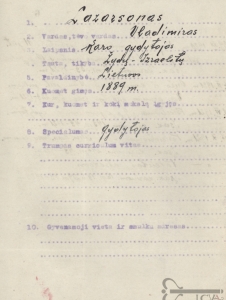 Lazarsonas
2. Vardas, tėv. vardas. Vladimiras
3. Karo gydytojas
4. Tauta, tikyba. Žydų-Izraelitų
5. Lietuvos
6. Kuomet gimęs. 1889 m.
7. Kur, kuomet ir kokį mokslą
8. Specialumas. gydytojas
9. Trumpas curriculum vitae.
10. Gyvenamoji vieta ir adresas.